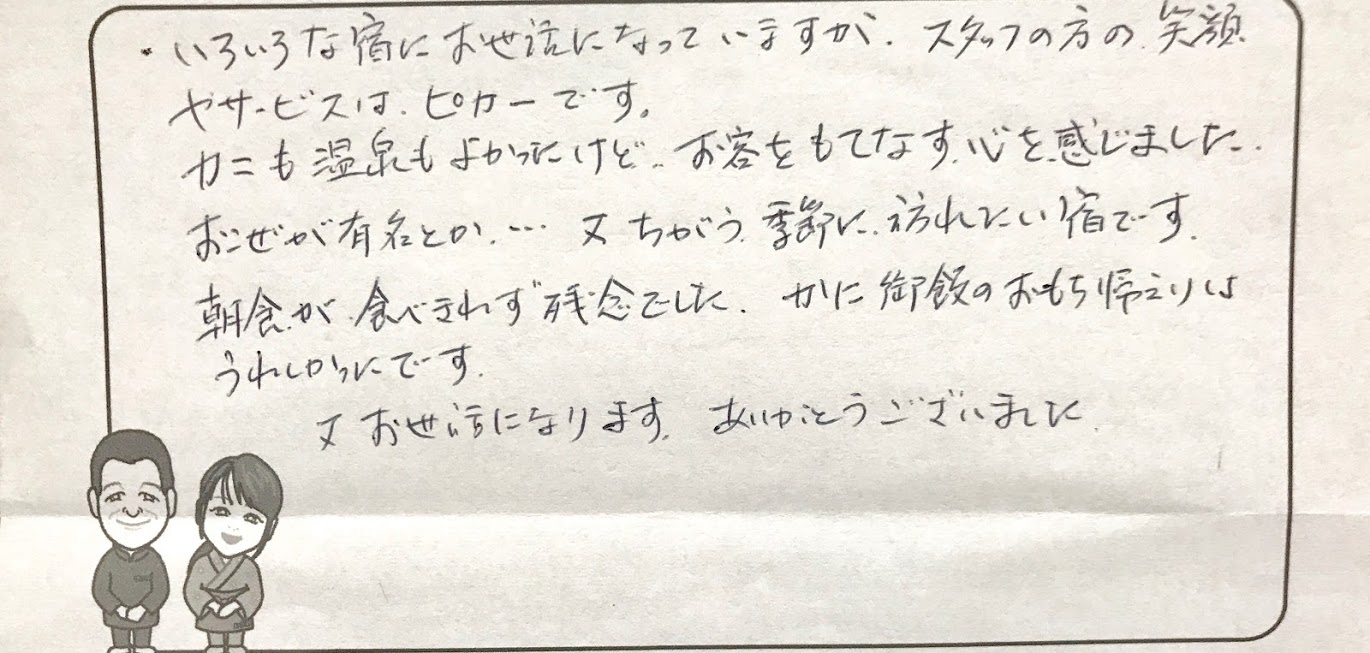 ・いろいろな宿にお世話になっていますが、スタッフの方の笑顔
やサービスは、ピカ一です。
カニも温泉もよかったけど、お客をもてなす心を感じました。
おこぜが有名とか、… 又ちがう季節に訪れたい宿です。
朝食が食べきれず残念でした。かに御飯のおもち帰えりは
うれしかったです。
又お世話になります。ありがとうございました。